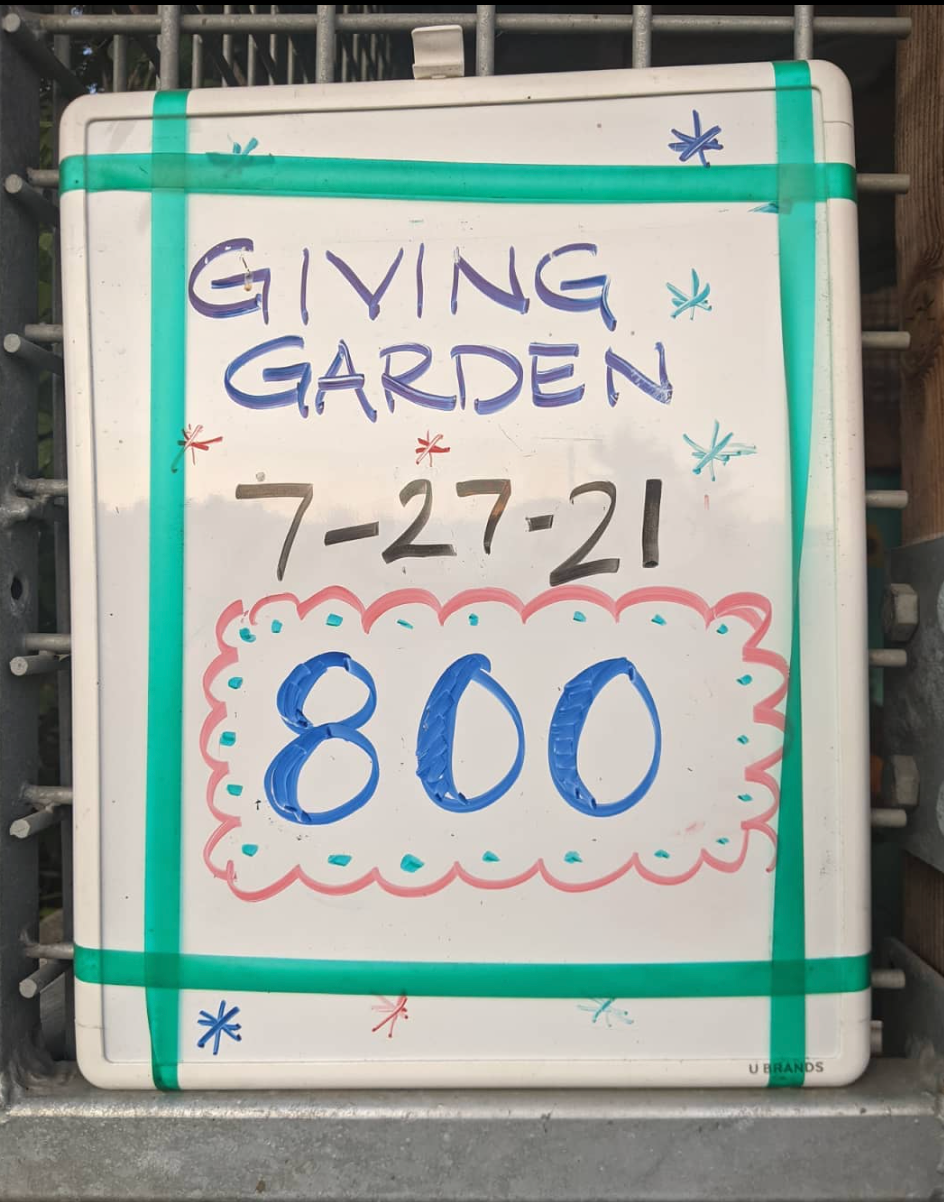 GIVING
GARDEN
7-27-21
800
U BRANDS